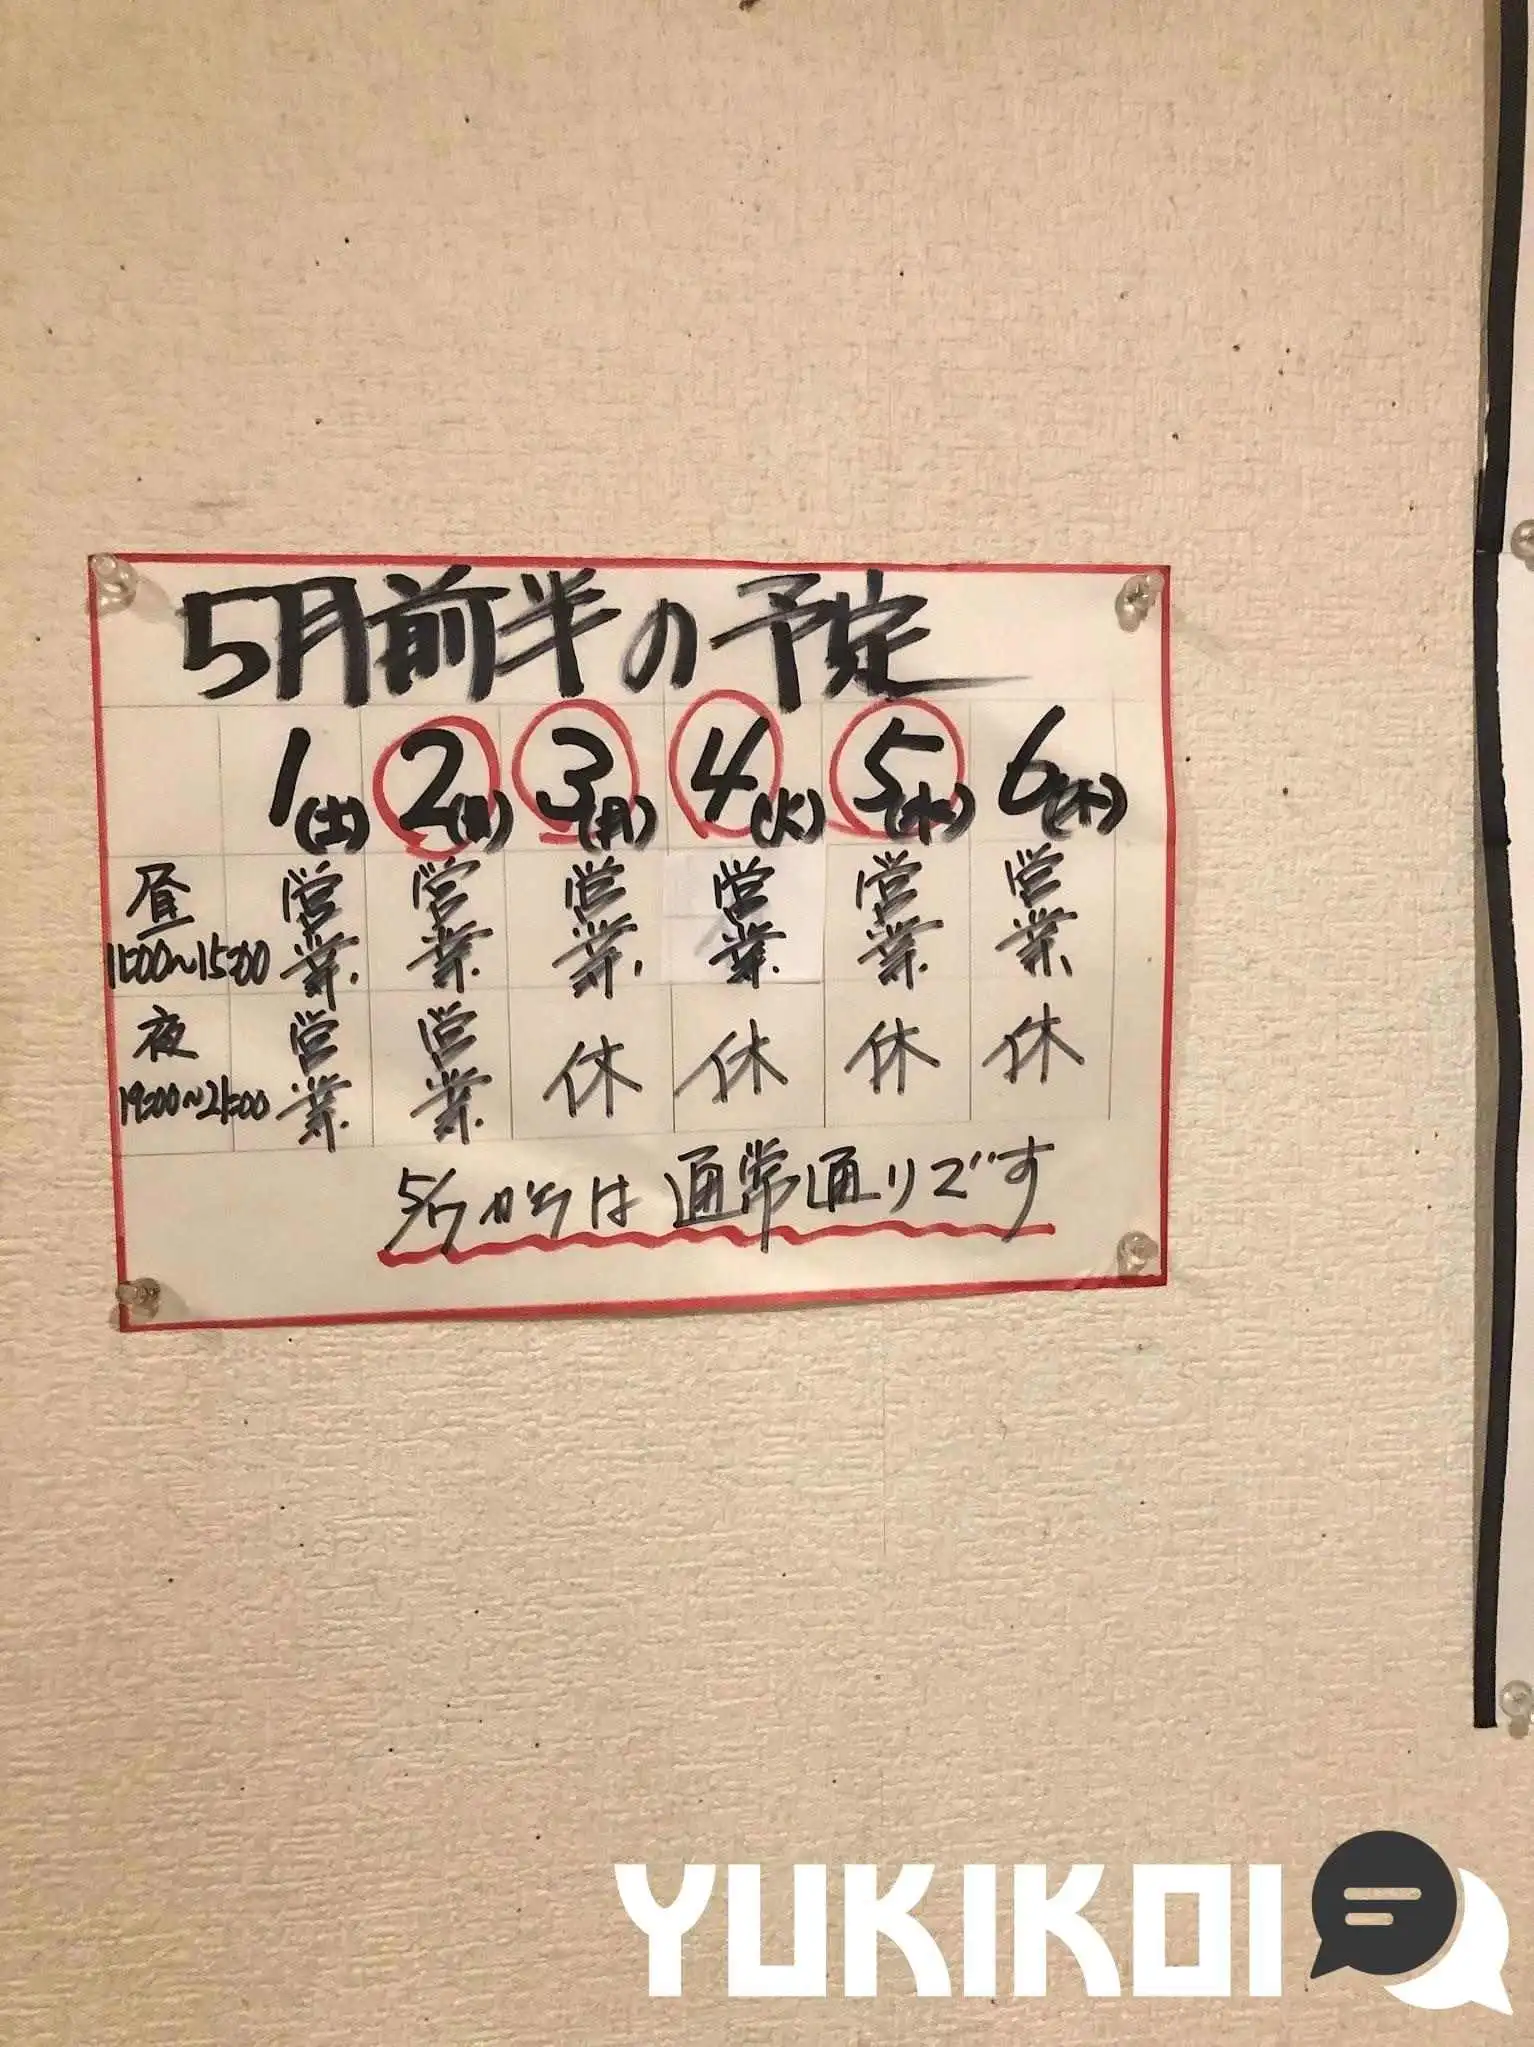 5月前半の予定
1(土) 2(日) 3(月) 4(火) 5(水) 6(木)
昼 11:00~15:00 営業. 営業. 営業. 営業. 営業. 営業.
夜 19:00~21:00 営業. 営業. 休 休 休 休
5/7からは通常通りです
YUKIKOI